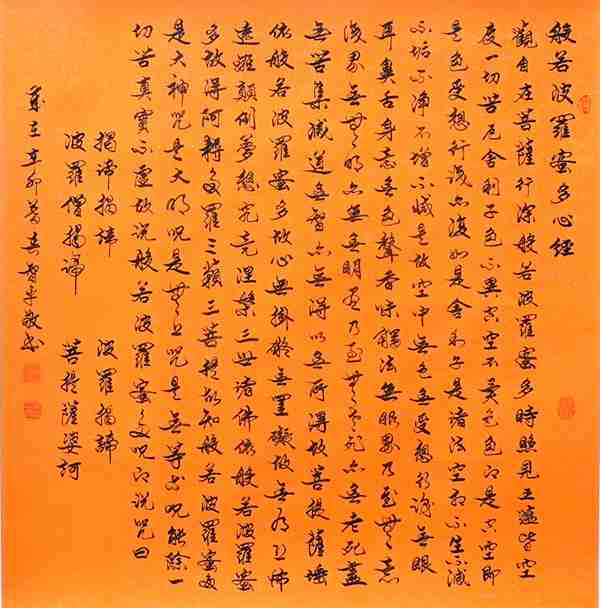 般若波羅蜜多心經
觀自在菩薩行深般若波羅蜜多時照見五蘊皆空
度一切苦厄舍利子色不異空空不異色色即是空空即
是色受想行識亦復如是舍利子是諸法空相不生不滅
不垢不淨不增不減是故空中無色無受想行識無眼
耳鼻舌身意無色聲香味觸法無眼界乃至無意
識界無無明亦無無明盡乃至無老死亦無老死盡
無苦集滅道無智亦無得以無所得故菩提薩埵
依般若波羅蜜多故心無掛礙無罣礙故無有恐怖
遠離顛倒夢想究竟涅槃三世諸佛依般若波羅蜜
多故得阿耨多羅三藐三菩提故知般若波羅蜜多
是大神咒是大明咒是無上咒是無等等咒能除一
切苦真實不虛故說般若波羅蜜多咒即說咒曰
揭諦揭諦 波羅揭諦
波羅僧揭諦 菩提薩婆訶
歲在辛卯春智平敬書